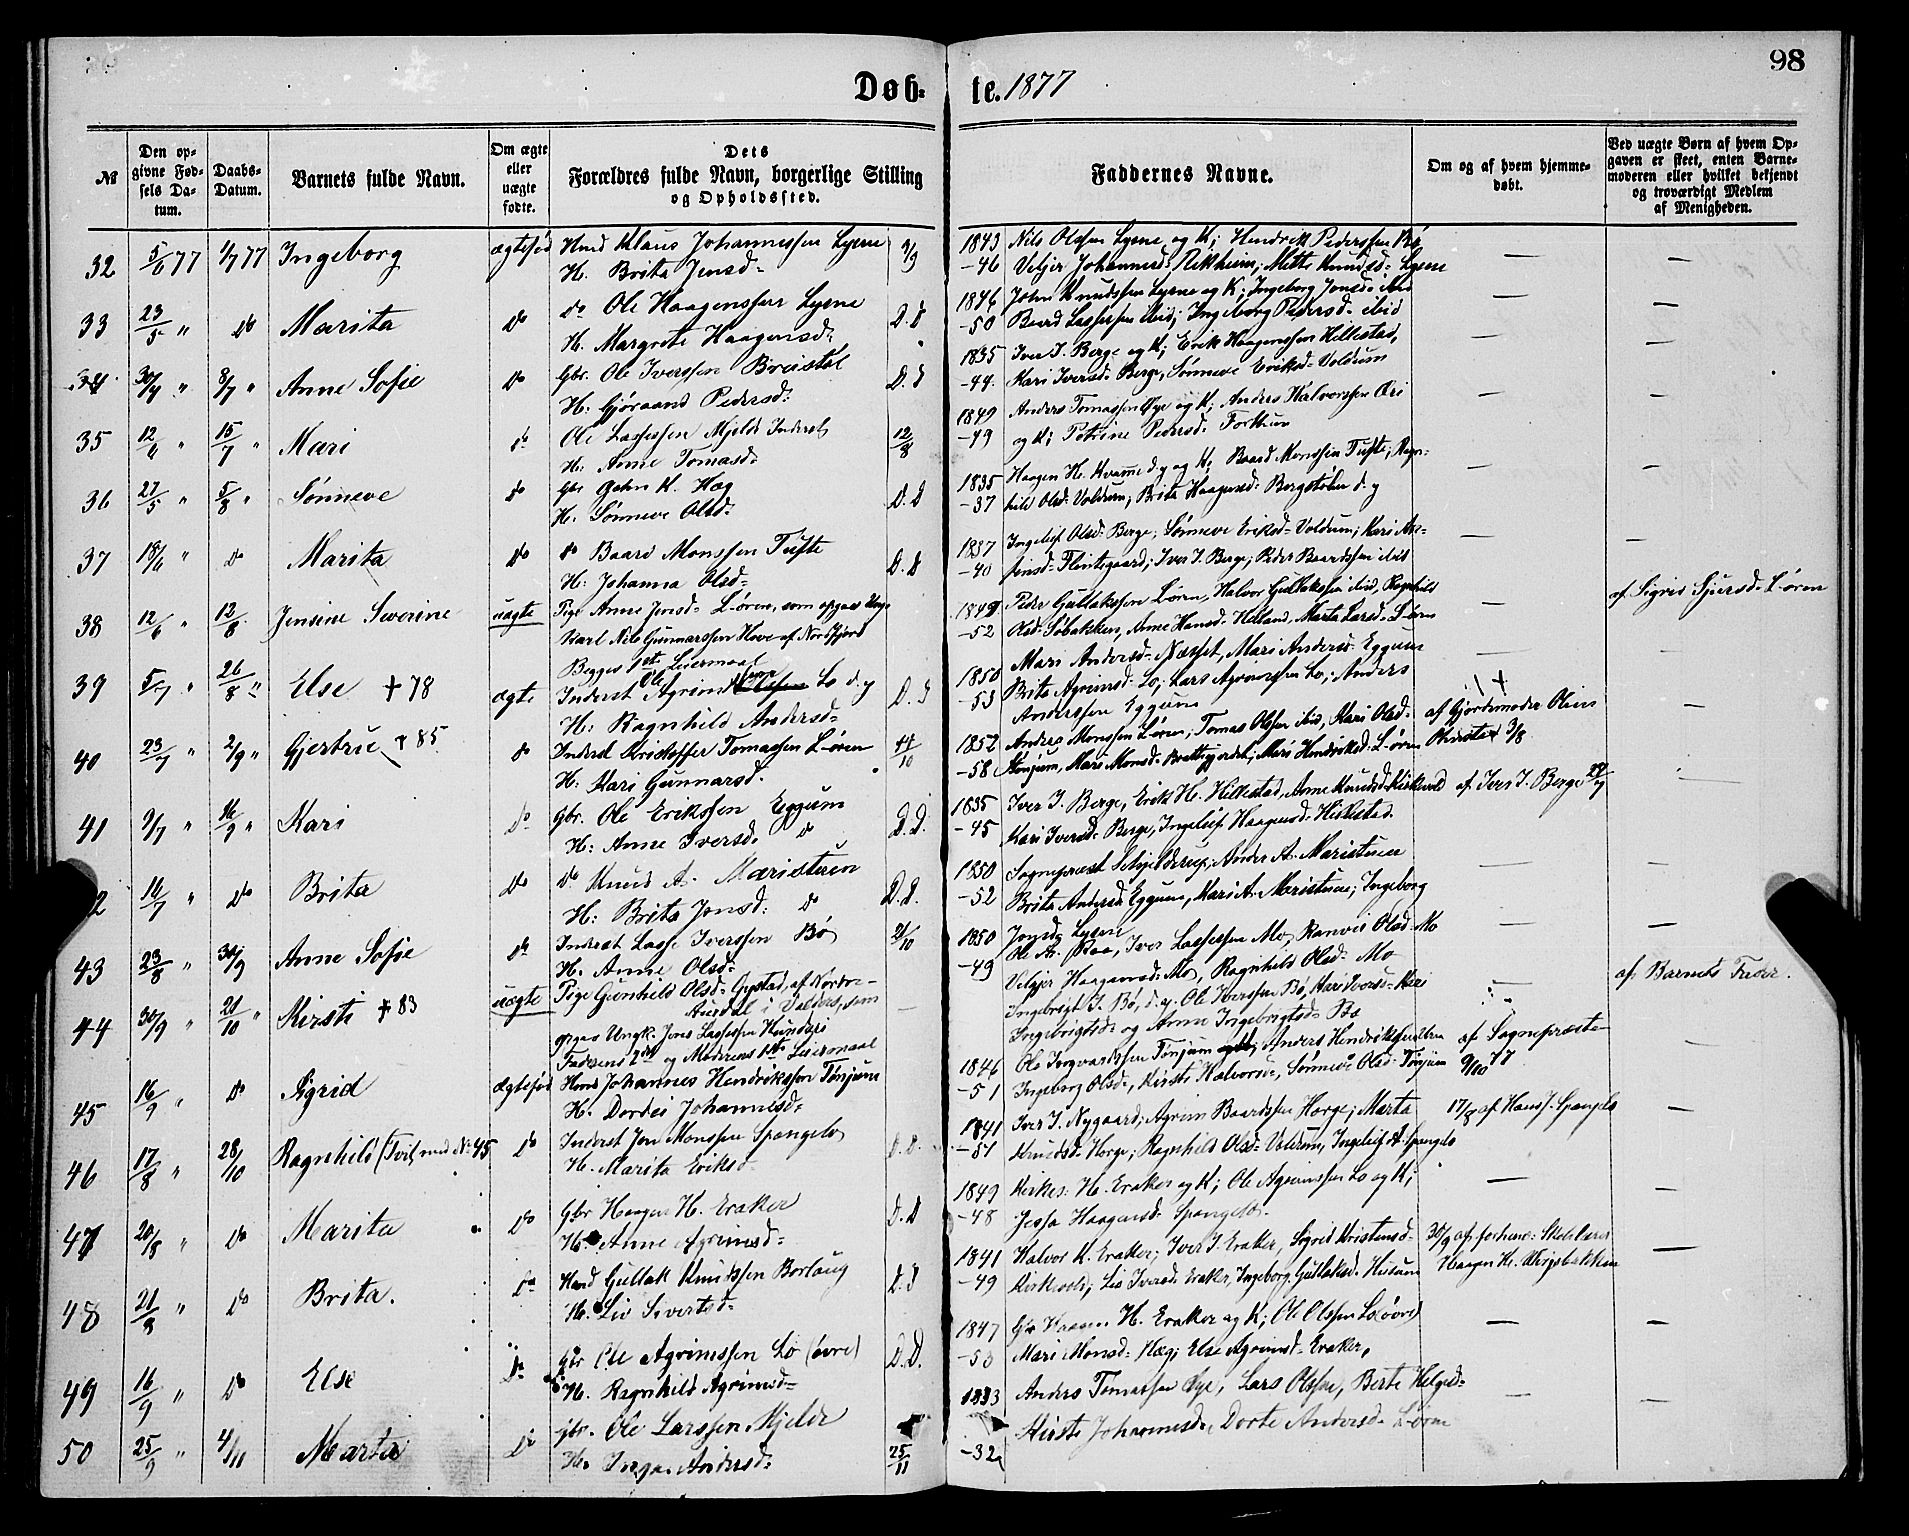 98
Døb-te. 1877
№ | Den opgivne Fødsels Datum. | Daabs-Datum. | Barnets fulde Navn. | Om ægte eller uægte fødte. | Dets Forældres fulde Navn, borgerlige Stilling og Opholdssted. | Faddernes Navne. | Om og af hvem hjemmedøbt. | Ved uægte Børn af hvem Opgaven er skeet, enten Barnemoderen eller hvilket bekjendt og troværdigt Medlem af Menigheden.
32 5/6 77 1/7 77 Ingeborg ægtefød Hmd Klaus Johannessen Lysne 1843 Nils Olssen Lysne og K; Hendrik Pederssen Bø,
H. Brita Jensd= -46 Velgjer Johannesd= Mette Knudsd= Lysne
33 23/5 " do Marita do do Ole Haagenssen Lysne D.D 1846 John Knudssen Lysne og K; Ingeborg Jonsd= ibid
H. Margrete Haagensd= -50 Baard Lassessen ibid; Ingeborg Pedersd= ibid
34 30/4 " 8/7 " Anne Sofie do Gbr. Ole Iverssen Breistøl D.D 1835 Iver J. Berge og K; Erik Haagenssen Hillestad,
H. Gjøraand Pedersd= -44. Kari Iversd= Berge, Sønneve Eriksd= Voldum
35 12/6 " 15/7 " Mari do Ole Lassessen Mjelde Inderst 12/8 1849 Anders Tomassen Øye og K; Anders Halvorssen Øri
H: Anne Tomasd= -49 og K; Petrine Pedersd= Forthun
36 27/5 " 5/8 " Sønneve do Gbr John K. Hæg D.D 1835 Haagen H. Kvamme d.y og K; Baard Monssen Tufte; Ragn-
H. Sønneve Olsd= -37 hild Olsd= Voldum; Brita Haagensd= Bergstølen d. y
37 18/6 " do Marita do do Baard Monssen Tufte D.D 1837 Ingeleif Olsd= Berge; Sønneve Eriksd= Voldum; Kari An-
H: Johanna Olsd= -40 finsd= Flintegaard; Iver J. Berge; Peder Baardssen ibid
38 12/6 " 12/8 Jensine Severine uægte Pige Anne Jensd= L-øren, som opgav Ung- 1849 Peder Gullakssen L-øren, Halvor Gullakssen ibid, Ragnhild af Sigrid Sjursd= L-øren
karl Nils Gunnarssen Hove af Nordfjord -52 Olsd= Søbakken, Anne Hansd= Helland, Marta Larsd= L-øren
Begges 1ste Leiermaal
39 5/7 " 26/8 " Else + 78 ægte Inderst Ole Agrimssen Lo d. y D.D 1850 Mari Andersd= Næsset, Mari Andersd= Eggum
H: Ragnhild Andersd= -53 Brita Agrimsd= Lo, Lars Agrimssen Lo, Anders
Anderssen Eggum
40 23/7 " 2/9 " Gjertrud + 85 do Inderst Kristoffer Tomassen L-øren 14/10 1852 Anders Monssen L-øren; Tomas Olssen ibid, Kari Olsd= af Gjordemoder Oline
H: Kari Gunnarsd. -58 Tønjum, Mari Monsd= Brattegjerdet, Mari Hendriksd= L-øren 3/8
41 9/7 " 16/9 " Kari do Gbr. Ole Erikssen Eggum D.D. 1835 Iver J. Berge, Erik H. Hillestad, Anne Knudsd= Kirkevold af Iver J. Berge
H: Anne Iversd. do -45 Kari Iversd= Berge, Ingeleif Haagensd= Hillestad.
2 16/7 " do Brita do do Knud A. Maristuen D.D. 1850 Sogneprest Schjelderup, Anders A. Maristuen
H: Brita Jonsd: do -52 Brita Andersd Eggum, Mari A. Maristuen; Ingeborg
Jonsd= Lysne
43 23/8 " 30/9 Anne Sofie do Inderst Lasse Iverssen Bø 21/10 1850 Iver Lassessen Mo, Ranvei Olsd= Mo
H. Anne Olsd= -49 Velgjer Haagensd= Mo, Ragnhild Olsd= Mo
44 30/9 " 21/10 " Kirsti + 83 uægte Pige Gunhild Olsd= Gystad, af Nordre- Ingebrigt J. Bø, d.y. Ole Iverssen Bø, Kari Iversd= Kari af Barnets Fader.
Aurdal i Valders, som Ingebrigtsd= og Anne Ingebrigtsd= Bø
opgav Ungk. Jens Lassessen Hunderi af Sogneprest
Faderens 2det og Moderens 1ste Leiermaal 9/10 77
45 16/9 " do Sigrid ægtefød Hmd Johannes Hendrikssen Tønjum 1846 Ole Ingvardssen Tønjum Anders Hendrikssen
H. Dordei Johannesd= -51 Ingeborg Olsd=, Kirsti Halvorsd=, Sønneve Olsd= Tønjum
46 17/8 " 28/10 Ragnhild (Tvil. med N. 45 do Inderst Jon Monssen Spangelo D.D. 1841 Iver J. Nygaard; Agrim Baardssen Horge; Marta 17/8 af Hans J. Spangelo
H. Marita Eriksd= -51 Knudsd= Horge; Ragnhild Olsd= Voldum, Ingeleif A. Spangelo
47 20/8 " do Marita do Gbr Haagen H. Eraker D.D 1849 Kirkes: H. Eraker og K; Ole Agrimssen Lo og K;
H. Anne Agrimsd= -48 Haagensd= Spangelo.
48 21/8 " do Brita. do Hmd Gullak Knudssen Borlaug D.D 1841 Halvor K. Eraker; Iver J. Eraker, Sigrid Kristensd= 30/9 af forhenv: Skolelærer
H. Liv Sivertsd= -49 Kirkevold; Liv Iversd= Eraker, Ingeborg Gullaksd= Husum Haagen H.
49 16/9 " do Else do Gbr Ole Agrimssen Lo (øvre) D.D. 1847 Gbr Haagen H. Eraker og K; Ole Olssen Lo (øvre)
H. Ragnhild Agrimsd= -53 Mari Monsd= Hæg; Else Agrimsd= Eraker,
50 25/9 " 4/11 Marta do gbr. Ole Larssen Mjelde 25/11 1833 Anders Tomassen Øye, Lars Olssen, Berte Helged=
H. Inga Andersd= -32 Kirsti Johannesd=, Dorte Andersd= L-øren